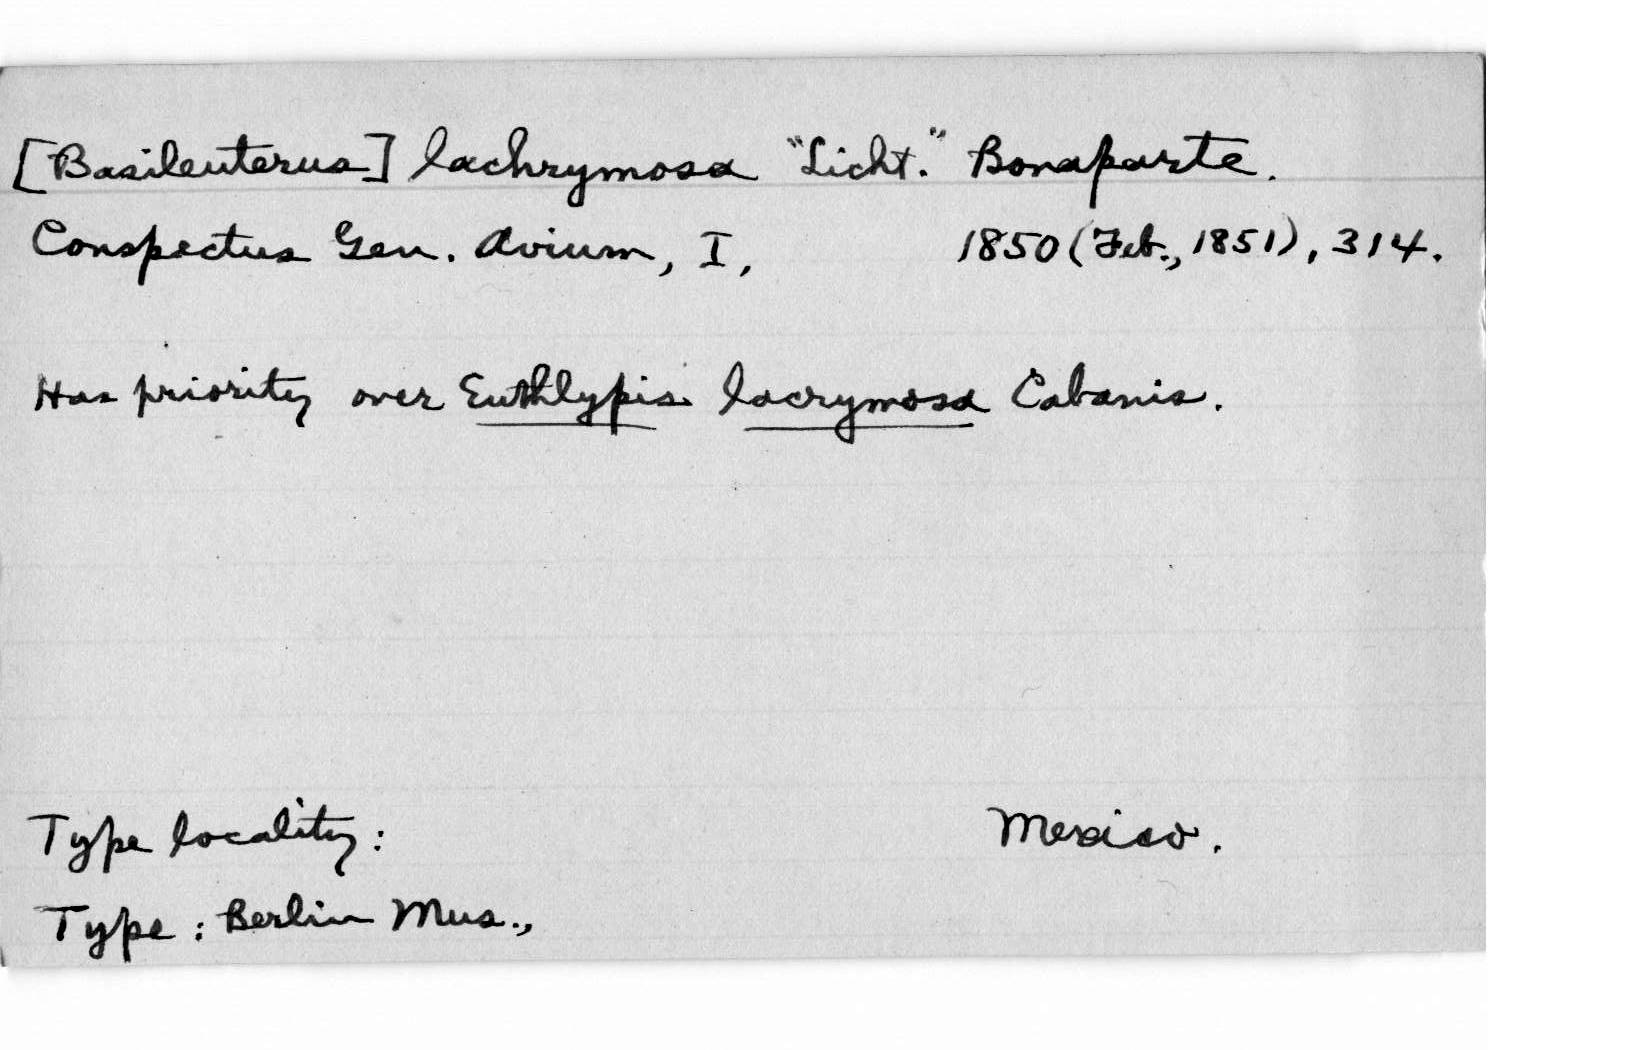 [Basileuterus] lachrymosa "Licht." Bonaparte.
Conspectus Gen. Avium, I, 1850 (Feb., 1851), 314.
Has priority over Euthlypis lacrymosa Cabanis.
Type locality: Mexico.
Type: Berlin Mus.,